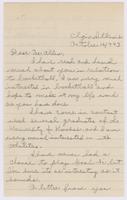 October 14, 1943
Dear Mr. Allen,
I have read and heard
much about you in relation
to basketball. I am very much
interested in basketball and
hope to make it my life work
as you have done.
I have come in contact
with several graduates of the
University of Kansas and I am
very much interested in its
athletics.
I have never had a
chance to play but I
am sure its as interesting as it
sounds.
A letter from you